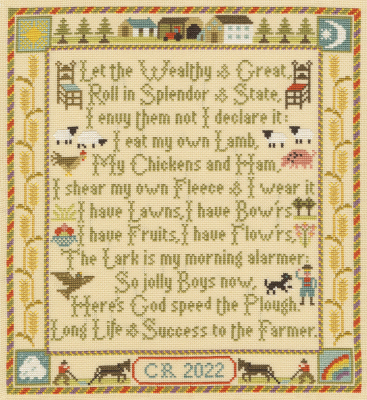 Let the Wealthy & Great,
Roll in Splendor & State,
I envy them not I declare it:
I eat my own Lamb,
My Chickens and Ham,
I shear my own Fleece & I wear it
I have Lawns, I have Bow'rs
I have Fruits, I have Flow'rs,
The Lark is my morning alarmer:
So jolly Boys now,
Here's God speed the Plough.
Long Life & Success to the Farmer.
C R 2022